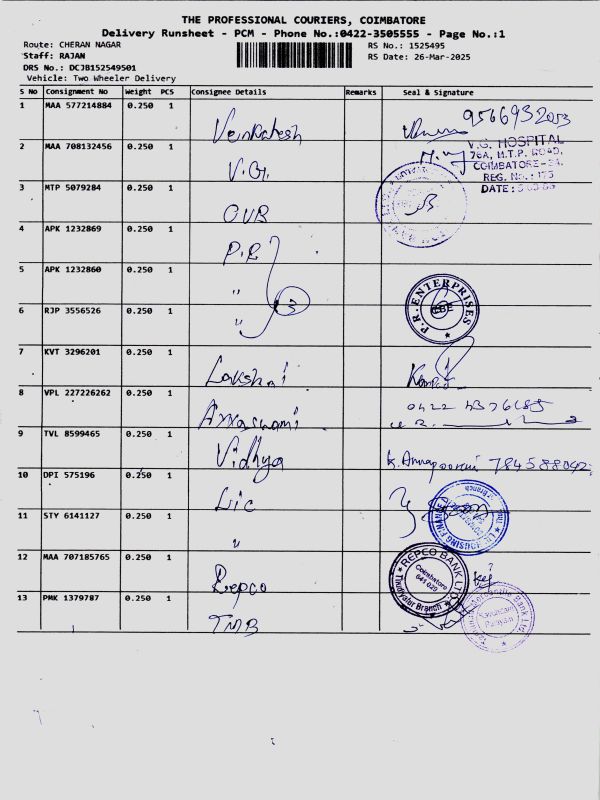 THE PROFESSIONAL COURIERS, COIMBATORE
Delivery Runsheet - PCM - Phone No.:0422-3505555 - Page No.:1
Route: CHERAN NAGAR RS No.: 1525495
Staff: RAJAN RS Date: 26-Mar-2025
DRS No.: DCJB152549501
Vehicle: Two Wheeler Delivery
S No Consignment No Weight PCS Consignee Details Remarks Seal & Signature
1 MAA 577214884 0.250 1 Venkatesh 9566932053
2 MAA 708132456 0.250 1 V.G.
V.G. HOSPITAL
76A, M.T.P. ROAD,
COIMBATORE-
REG. No.: 175
DATE:
3 MTP 5079284 0.250 1 OVR
4 APK 1232869 0.250 1 P.R
5 APK 1232860 0.250 1 "
6 RJP 3556526 0.250 1 "
P.R. ENTERPRISES
CBE
7 KVT 3296201 0.250 1 Lakshmi
8 VPL 227226262 0.250 1 0422
9 TVL 8599465 0.250 1 Vidhya K. Annapoorni 784588042
10 DPI 575196 0.250 1 Lic
HOUSING FINANCE
11 STY 6141127 0.250 1 "
12 MAA 707185765 0.250 1 Repco
REPCO BANK LTD.
Coimbatore
641 029
Thudiyalur Branch
13 PMK 1379787 0.250 1 TMB
Tamilnad Mercantile Bank Ltd.